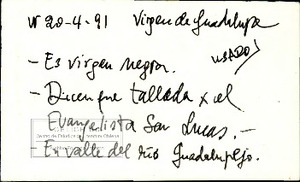 W 20-4-91 Virgen de Guadalupe
USADO
- Es virgen negra.
- Dicen fue tallada x el
Evangelista San Lucas.-
- En valle del río Guadalupejo.